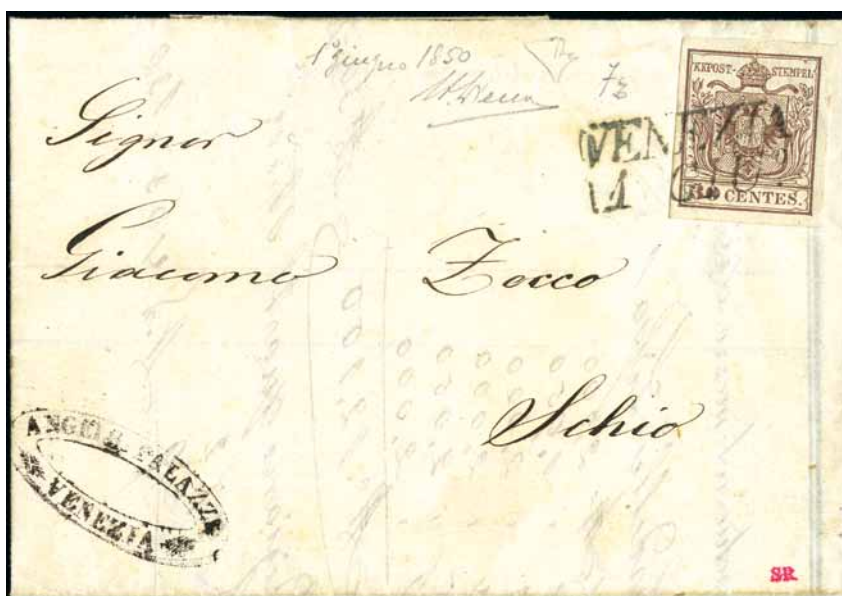 1° giugno 1850
KKPOST-STEMPEL
VENEZIA
1 GIU.
30 CENTES.
Signor
Giacomo Zocco
Schio
ANGELO PALAZZI
VENEZIA
SR